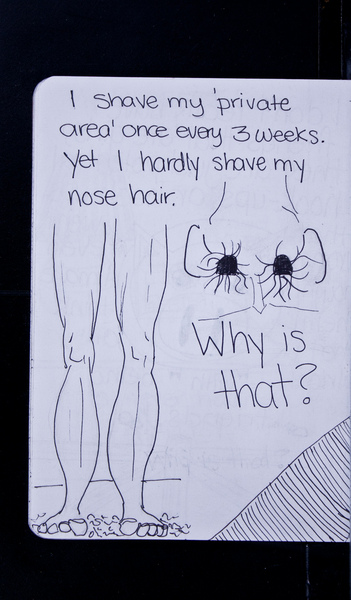 I shave my 'private
area' once every 3 weeks.
Yet I hardly shave my
nose hair.
Why is
that?